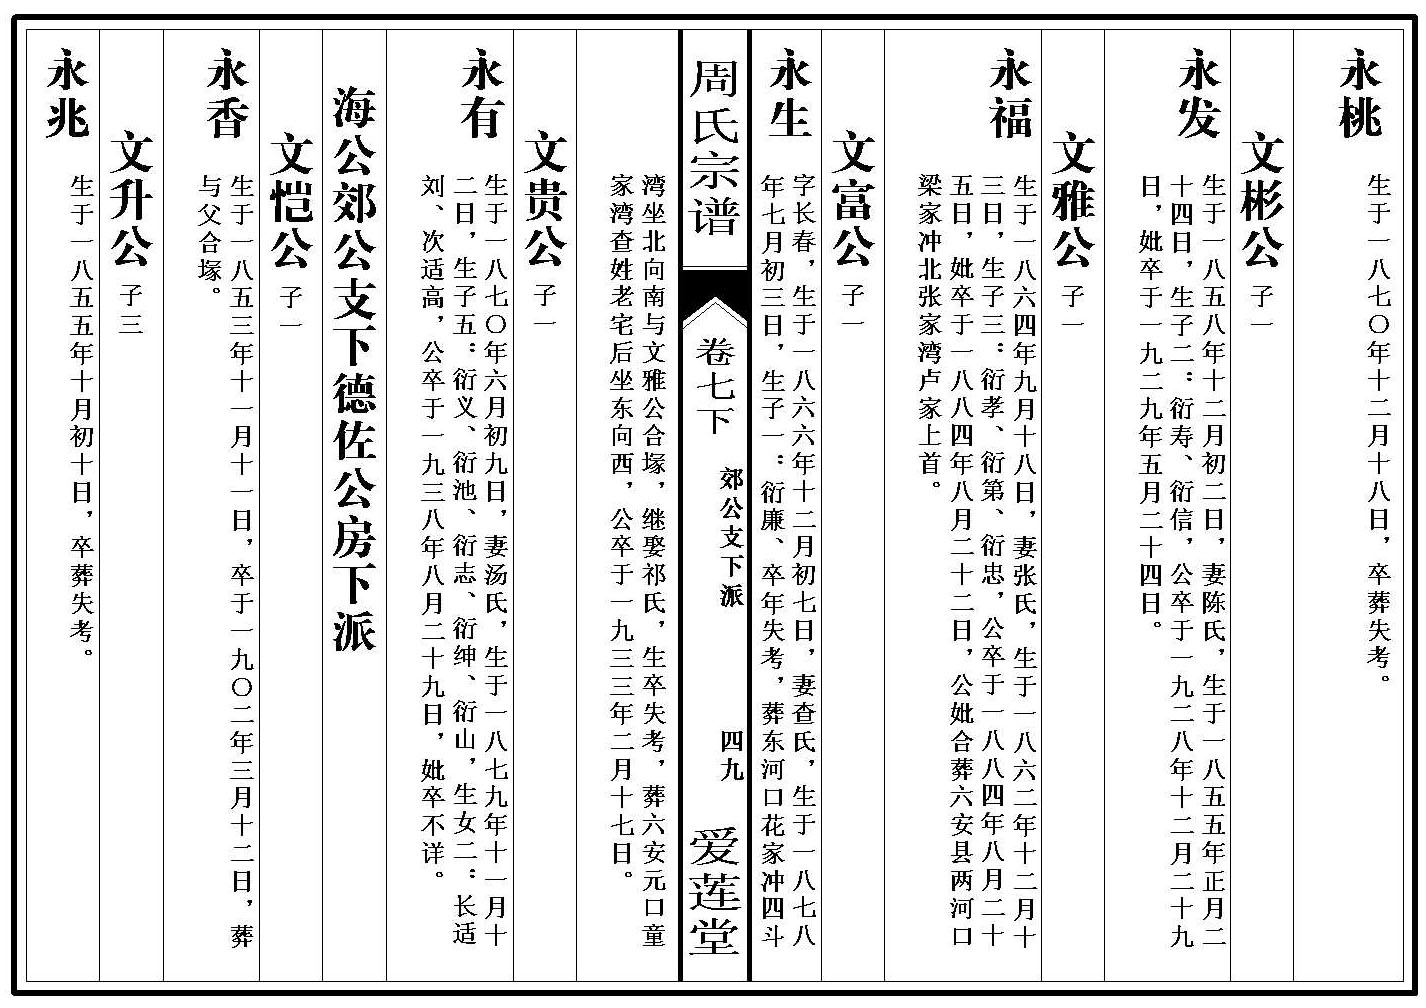 永桃
生于一八七〇年十二月十八日，卒葬失考。
文彬公 子一
永发
生于一八五八年十二月初二日，妻陈氏，生于一八五五年正月二
十四日，生子二：衍寿、衍信，公卒于一九二八年十二月二十九
日，妣卒于一九二九年五月二十四日。
文雅公 子一
永福
生于一八六四年九月十八日，妻张氏，生于一八六二年十二月十
三日，生子三：衍孝、衍第、衍忠，公卒于一八八四年八月二十
五日，妣卒于一八八四年八月二十二日，公妣合葬六安县两河口
梁家冲北张家湾卢家上首。
文富公 子一
永生
字长春，生于一八六六年十二月初七日，妻查氏，生于一八七八
年七月初三日，生子一：衍廉、卒年失考，葬东河口花家冲四斗
周氏宗谱
卷七下
郊公支下派
四九
爱莲堂
湾坐北向南与文雅公合塚，继娶祁氏，生卒失考，葬六安元口童
家湾查姓老宅后坐东向西，公卒于一九三三年二月十七日。
文贵公 子一
永有
生于一八七〇年六月初九日，妻汤氏，生于一八七九年十一月十
二日，生子五：衍义、衍池、衍志、衍绅、衍山，生女二：长适
刘、次适高，公卒于一九三八年八月二十九日，妣卒不详。
海公郊公支下德佐公房下派
文恺公 子一
永香
生于一八五三年十一月十一日，卒于一九〇二年三月十二日，葬
与父合塚。
文升公 子三
永兆
生于一八五五年十月初十日，卒葬失考。